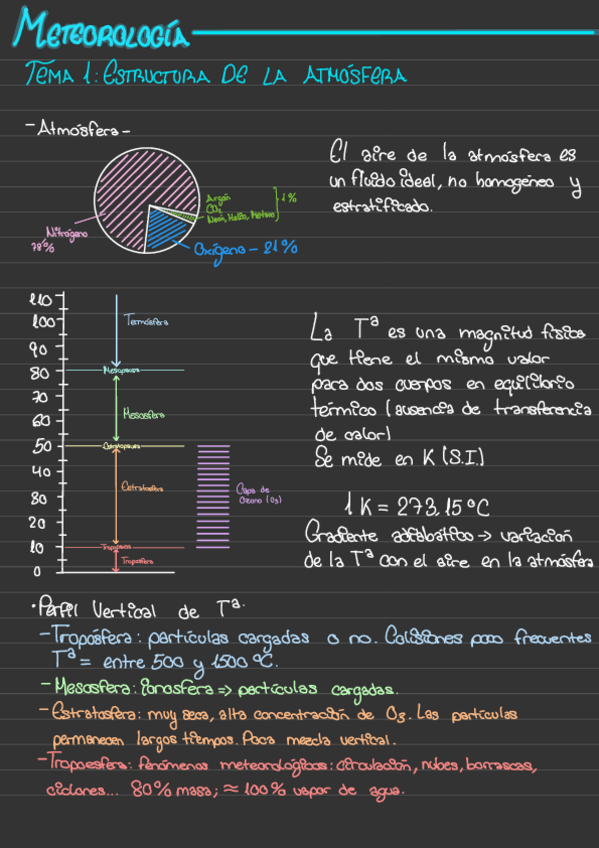 METEOROLOGÍA
TEMA 1: ESTRUCTURA DE LA ATMÓSFERA
- Atmósfera -
El aire de la atmósfera es
un fluido ideal, no homogéneo y
estratificado.
Argón
CO₂
Neón, Helio, Metano
1%
Nitrógeno
78%
Oxígeno - 21%
110
100
90
80
70
60
50
40
30
20
10
0
Termósfera
Mesopausa
Mesosfera
Estratopausa
Estratosfera
Tropopausa
Troposfera
Capa de
Ozono (O₃)
La Tª es una magnitud física
que tiene el mismo valor
para dos cuerpos en equilibrio
térmico (ausencia de transferencia
de calor)
Se mide en K (S.I.)
1 K = 273,15 ºC
Gradiente adiabático → variación
de la Tª con el aire en la atmósfera
· Perfil Vertical de Tª.
- Tropósfera: partículas cargadas o no. Colisiones poco frecuentes
Tª = entre 500 y 1500 ºC.
- Mesosfera: Ionosfera => partículas cargadas.
- Estratosfera: muy seca, alta concentración de O₃. Las partículas
permanecen largos tiempos. Poca mezcla vertical.
- Troposfera: fenómenos meteorológicos: circulación, nubes, borrascas,
ciclones... 80% masa; ≈ 100% vapor de agua.